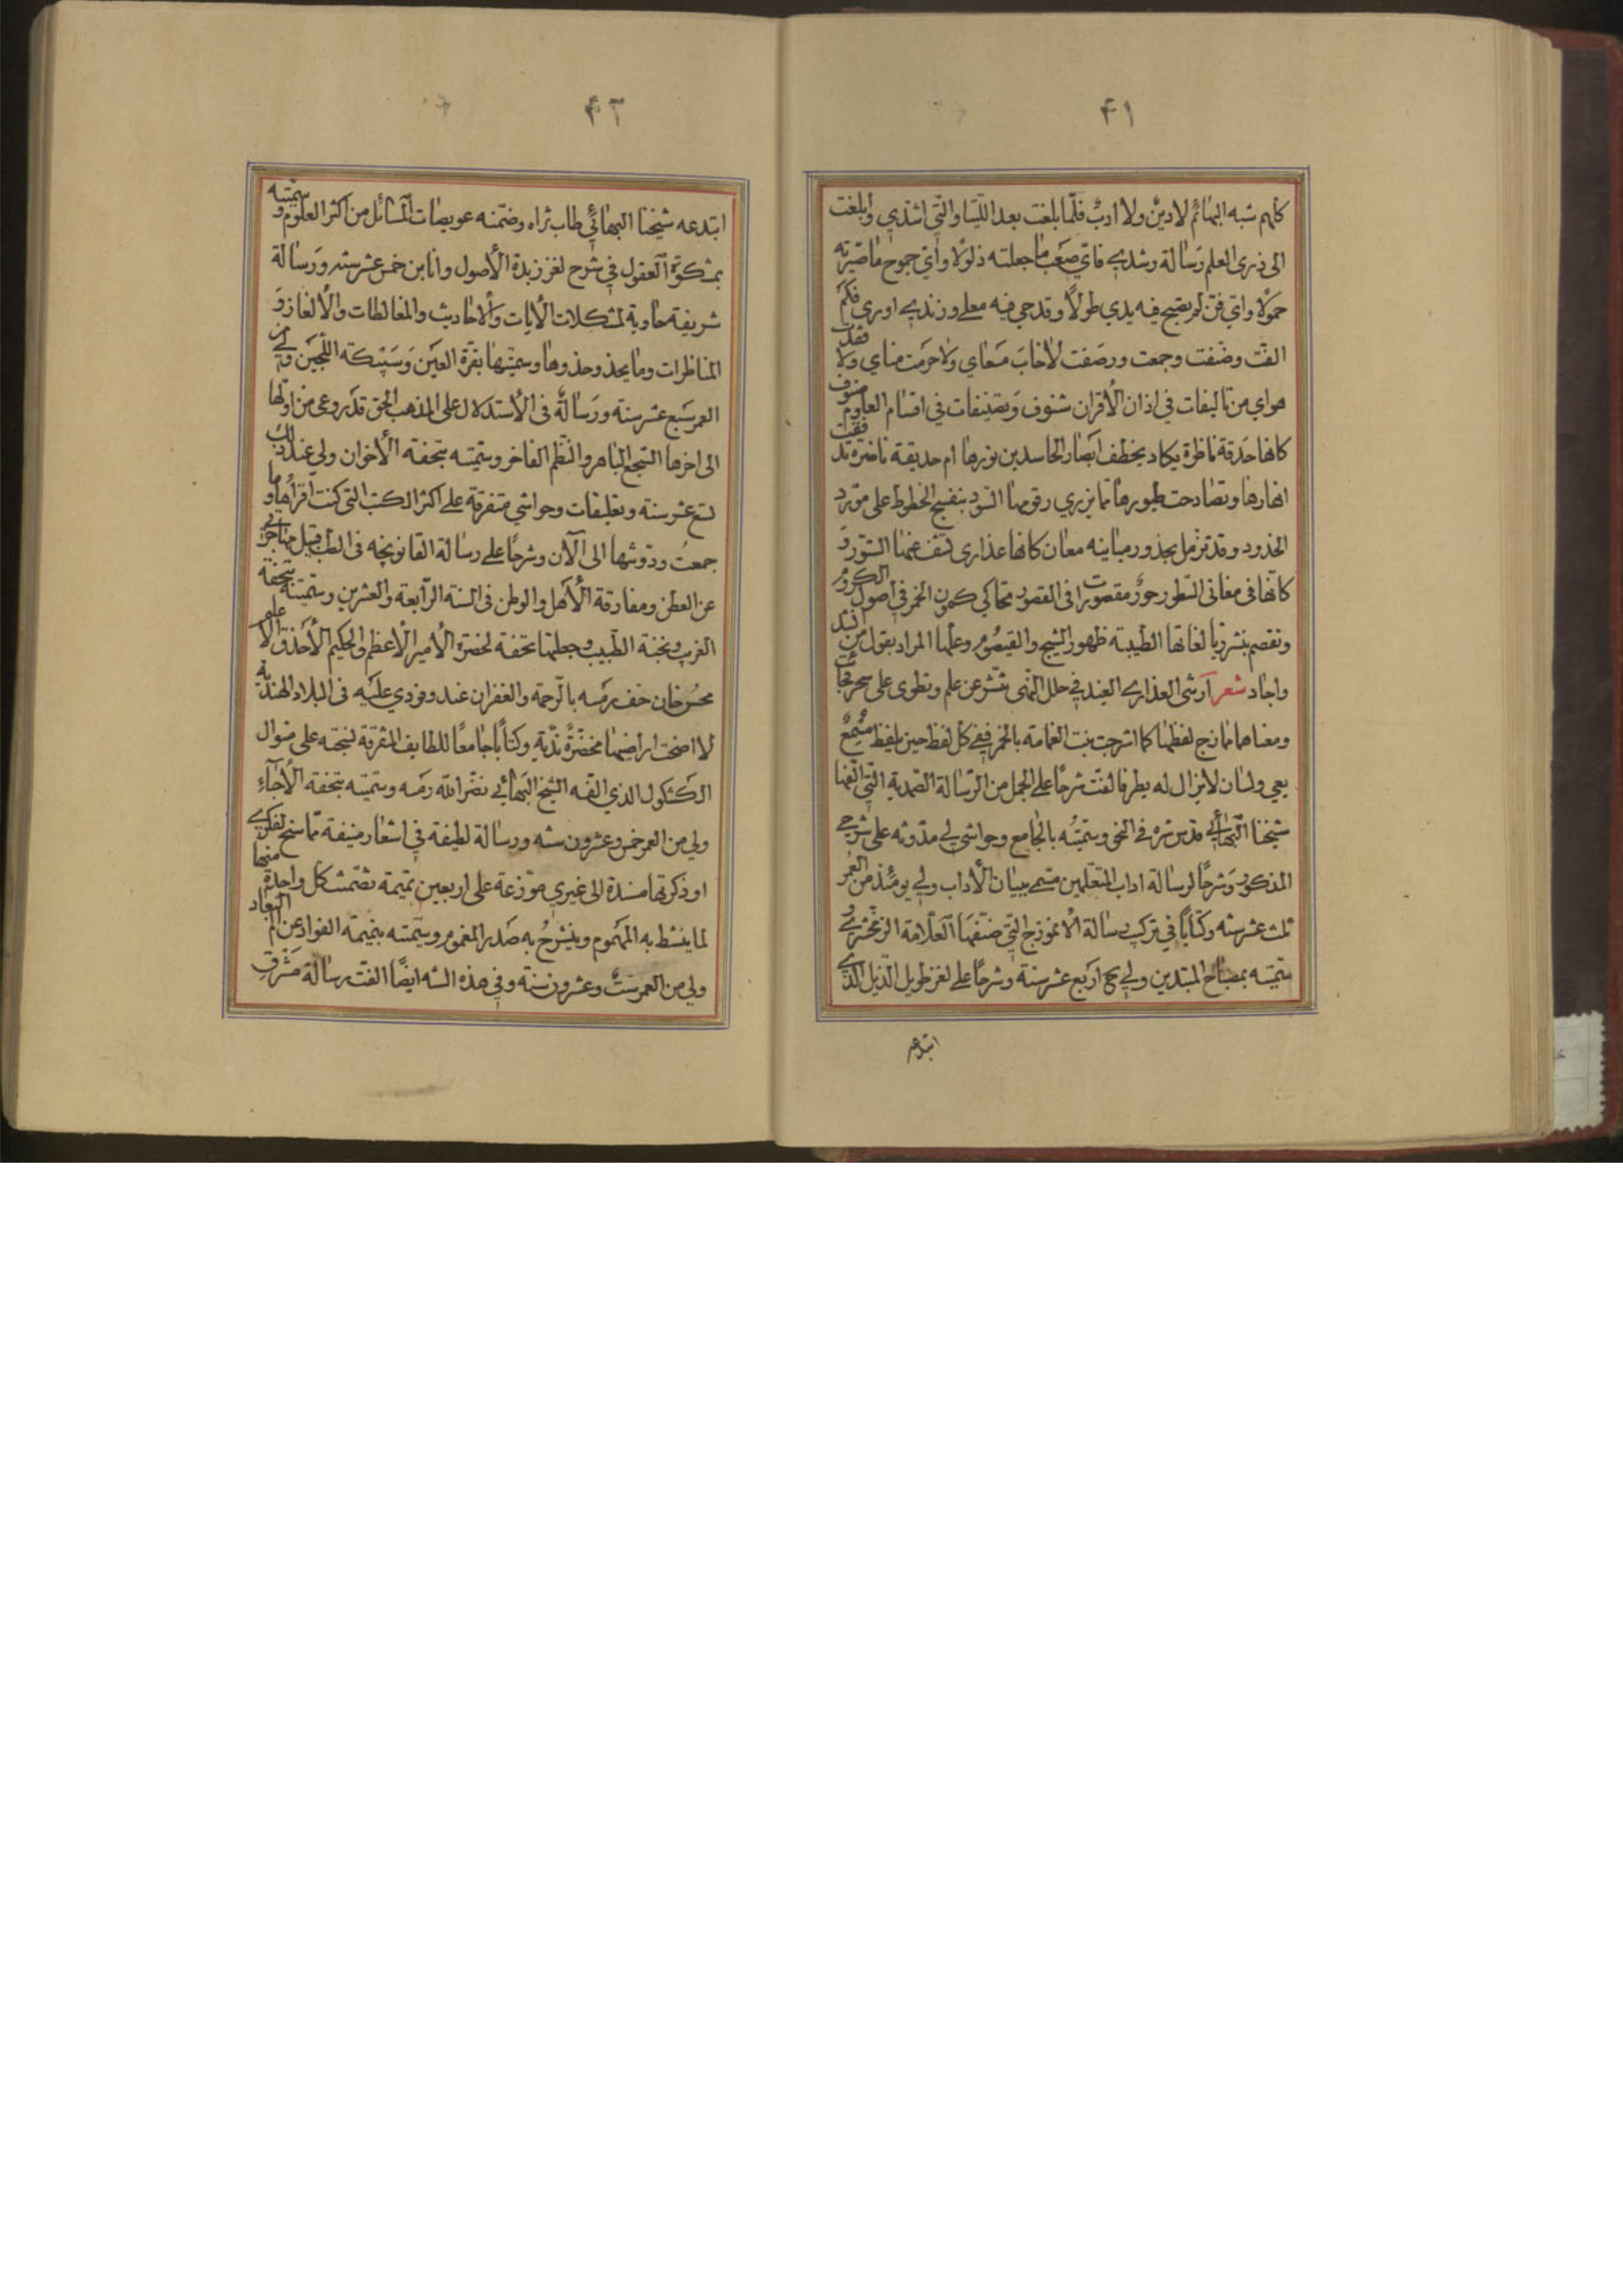 ۴۱
كانهم شبه البهائم لا دين ولا ادب فلما بلغت بعد اللتيا والتي اشدي وابلغت
الى ذرى العلم رسالة رشدي فاي صعب ما جعلته ذلولا واي جموح ما صيرته
حمولا واي فن لم يصبح فيه يدي طولا وقدحي فيه معلى وزندي اورى فكم
الفت وصنفت وجمعت ورصفت لا خاب مسعاي ولا حرمت مناي ولا فقد
هواي من تاليفات في اذان الاقران شنوف وتصنيفات في اقسام العلوم صنوف
كانها حدقة ناظرة يكاد يخطف ابصار الحاسدين نورها ام حديقة ناضرة تدفقت
انهارها وتصادحت طيورها مما يزري رقومها السود بنفسج الخطوط على مورد
الخدود وقد تزمل بجذور مبانيه معان كانها عذارى كشف عنها الستور و
كانها في مغاني السطور حور مقصورات في القصور تحاكي كمون الخمر في اصول الكروم
وتفصم بنشر ريا لغاتها الطيبة ظهور الشيح والقيصوم وعلها المراد بقول من انشد
واجاد شعر ارشى العذارى الغيد في حلل النهى تنشر عن علم وتطوى على سحر نجات
ومغناها تمازج لفظها كما امتزجت بنت الغمامة بالخمر ففي كل لفظ حين يلفظ مسمع
يعي ولسان لا يزال له يطرفا لفت شرحا على الجمل من الرسالة الصمدية التي الفها
شيخنا البهائي قدس سره في النحو وسميته بالجامع وحواشي لي مدونه على شرحي
المذكور وشرحا لرسالة اداب المتعلمين مسمى ببيان الآداب ولي يومئذ من العمر
ثلث عشر سنه وكتابا في تركيب رسالة الانموزج التي صنفها العلامة الزمخشري و
سميته بمصباح المبتدين ولي ح اربع عشر سنة وشرحا على لغز طويل الذيل الذي
ابتدعه
۴۲
ابتدعه شيخنا البهائي طاب ثراه وضمنه عويصات المسائل من اكثر العلوم وسميته
بمشكوة العقول في شرح لغز زبدة الأصول وانا ابن خمس عشر سنه ورسالة
شريفة حاوية لمشكلات الآيات والاحاديث والمغالطات والالغاز و
المناظرات وما يحذو حذوها وسميتها بقرة العين وسبيكة اللجين ولي من
العمر سبع عشر سنة ورسالة في الأستدلال على المذهب الحق قد روعى من اولها
الى اخرها السجع الباهر والنظم الفاخر وسميته بتحفة الأخوان ولي عند ذلك
تسع عشر سنة وتعليقات وحواشي متفرقة على اكثر الكتب التي كنت اقرأها وما
جمعت ودونتها الى الآن وشرحا على رسالة القانونچه في الطب قبيل مهاجرتي
عن العطن ومفارقة الأهل والوطن في السنة الرابعة والعشرين وسميته بتحفة
الغريب ونخبة الطبيب وجعلتها تحفة لحضرة الأمير الأعظم والحكيم الأحذق الاعلم
محسن خان حف رمسه بالرحمة والغفران عند وفودي عليه في البلاد الهندية
لا اضحت اراضيها مخضرة ندية وكتابا جامعا للطايف المفرقة نسجته على منوال
الكشكول الذي الفه الشيخ البهائي نضر الله رمسه وسميته بتحفة الأحباء
ولي من العمر خمس وعشرون سنه ورسالة لطيفة في اشعار منيفة مما سنح لفكري
او ذكرتها مسندة الى غيري موزعة على اربعين تميمة تضمنت كل واحدة منها
لما ينشط به المهموم وينشرح به صدر المغموم وسميته بتميمة الفواد عن الم البعاد
ولي من العمر ست وعشرون سنة وفي هذه السنه ايضا الفت رسالة مشرق